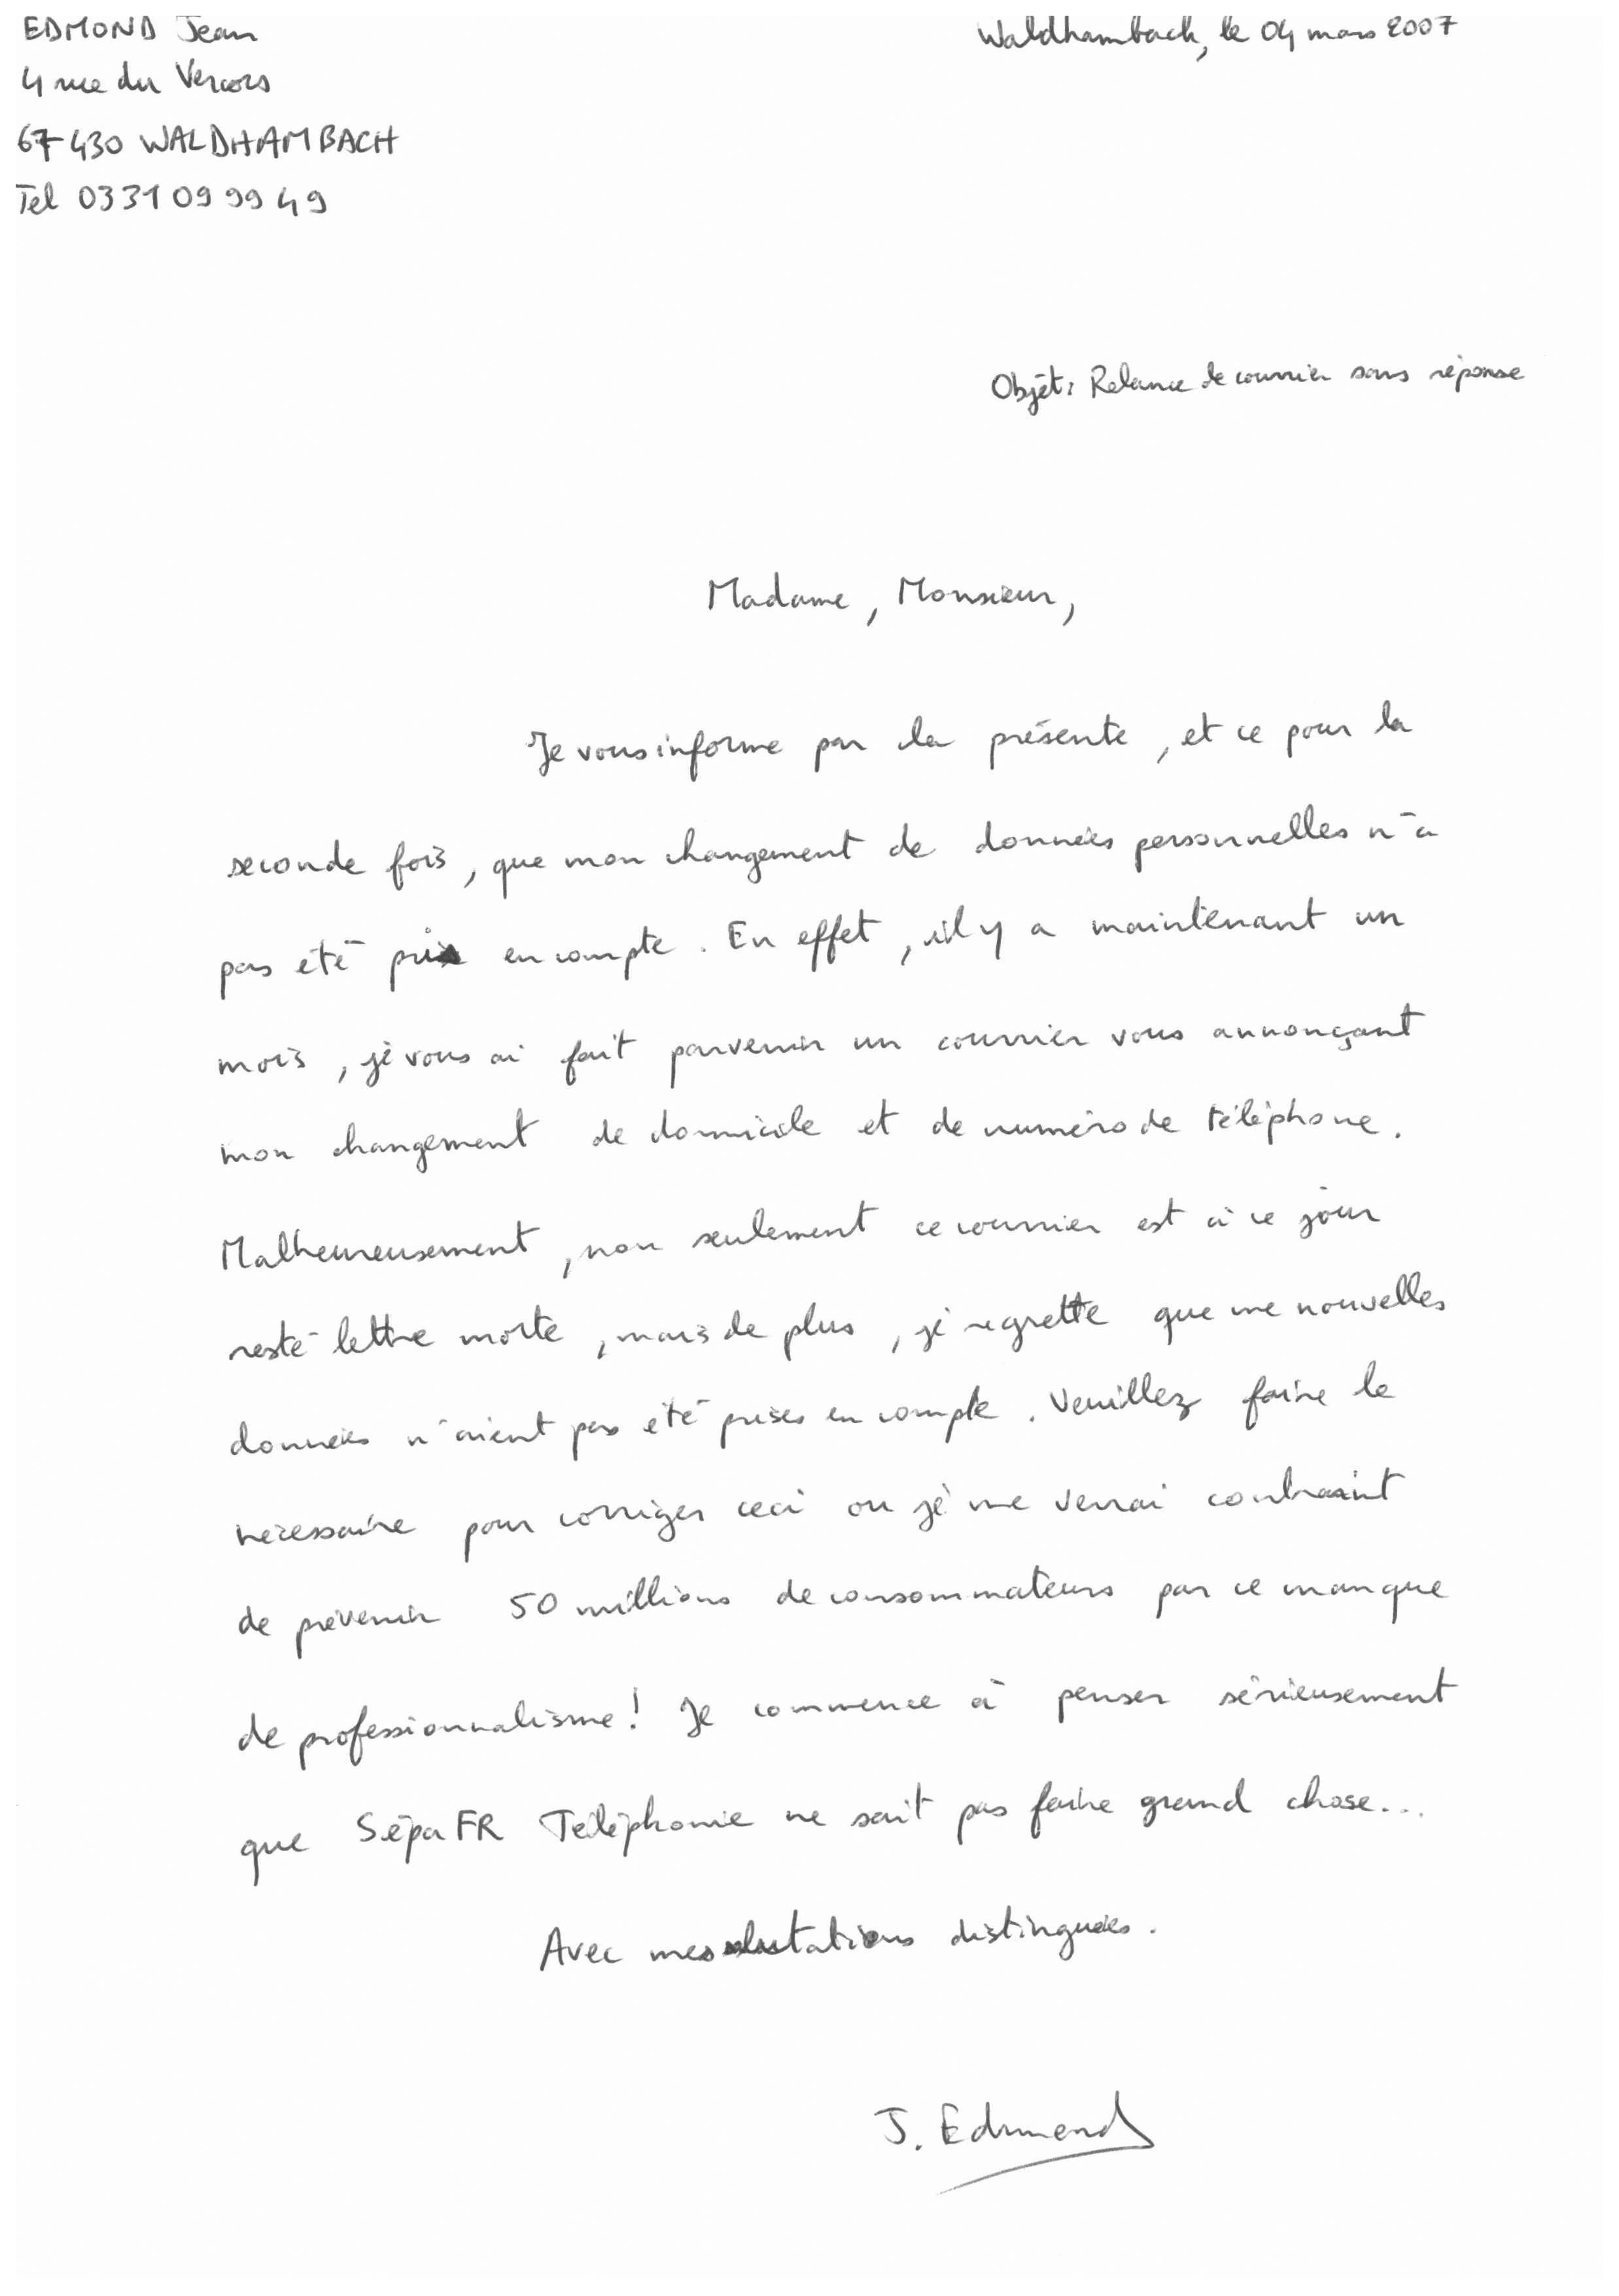 EDMOND Jean
Waldhambach, le 04 mars 2007
4 rue du Vercors
67430 WALDHAMBACH
Tel 03 31 09 99 49
Objet : Relance de courrier sans réponse
Madame, Monsieur,
Je vous informe par la présente, et ce pour la
seconde fois, que mon changement de données personnelles n'a
pas été pris en compte. En effet, il y a maintenant un
mois, je vous ai fait parvenir un courrier vous annonçant
mon changement de domicile et de numéro de téléphone.
Malheureusement, non seulement ce courrier est à ce jour
resté lettre morte, mais de plus, je regrette que me nouvelles
données n'aient pas été prises en compte. Veuillez faire le
nécessaire pour corriger ceci ou je me verrai contraint
de prévenir 50 millions de consommateurs par ce manque
de professionnalisme ! Je commence à penser sérieusement
que SépaFR Téléphonie ne sait pas faire grand chose...
Avec mes salutations distinguées.
J. Edmond